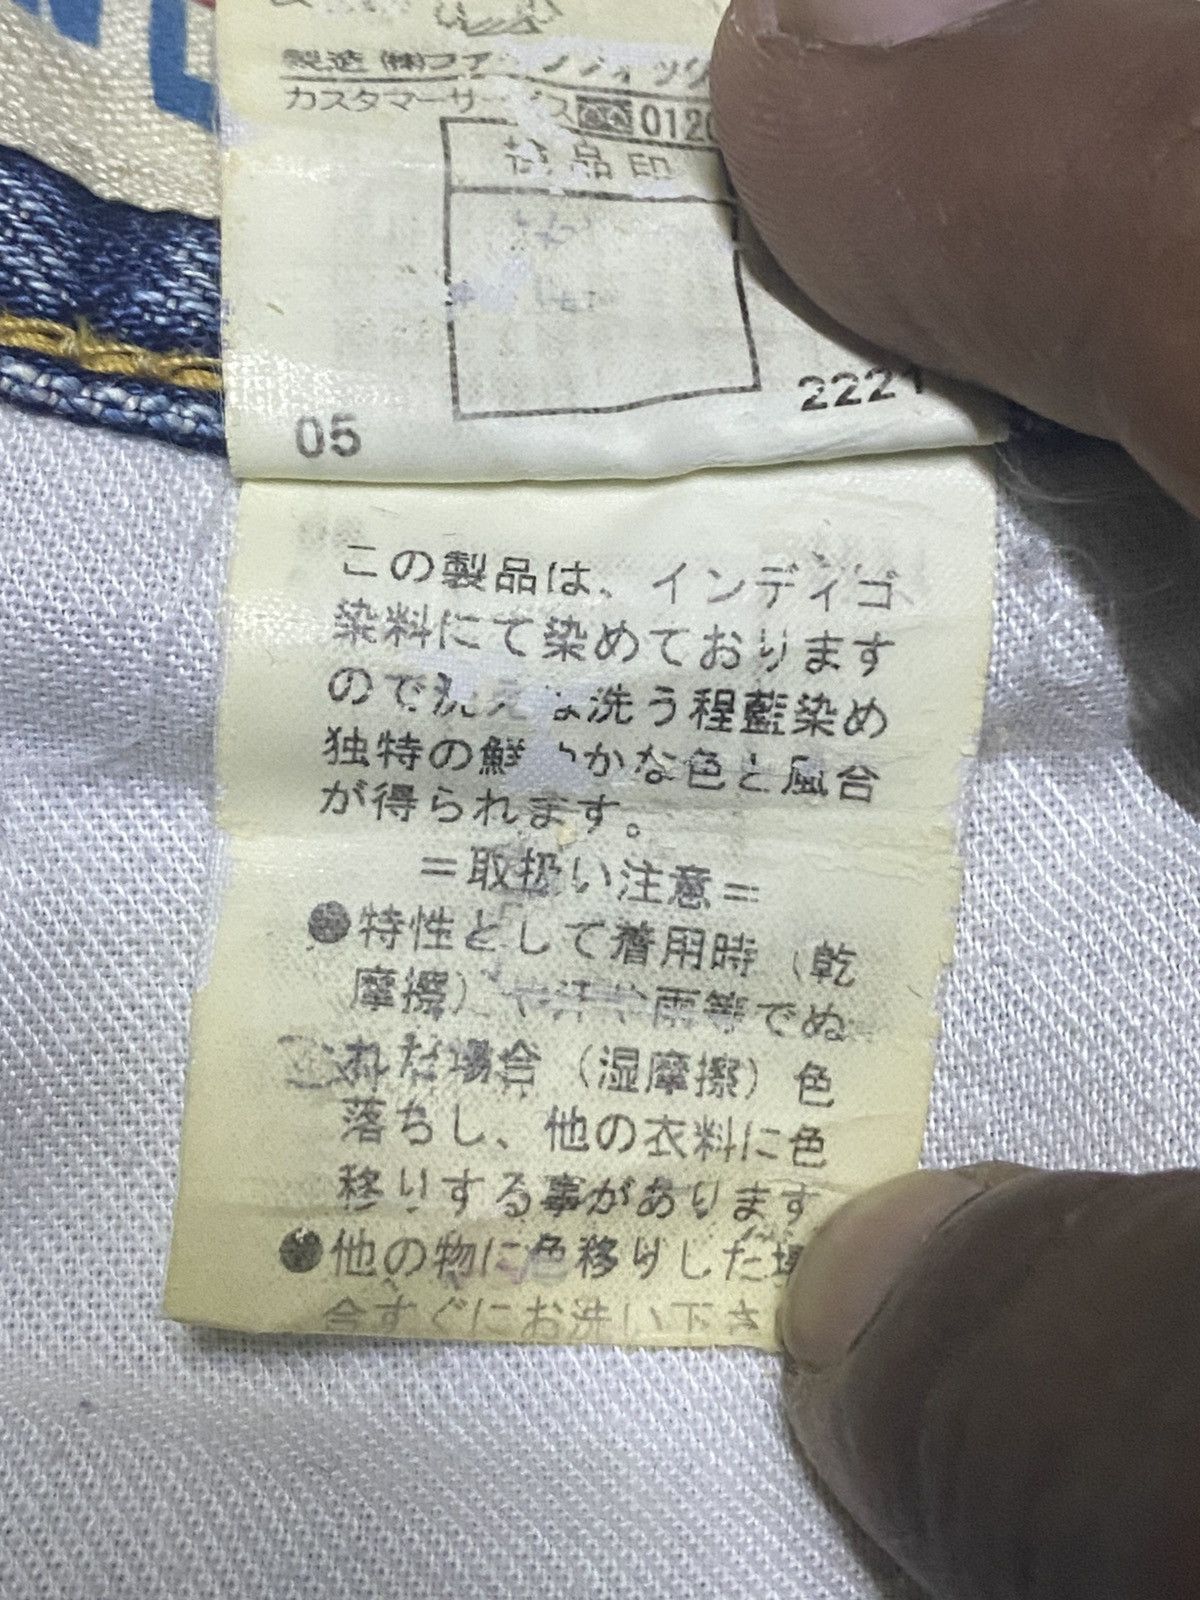 製造 ㈱ファ
カスタマーサービス 0120
検品印
05
2221
この製品は、インディゴ
染料にて染めております
ので洗えば洗う程藍染め
独特の鮮やかな色と風合
が得られます。
=取扱い注意=
●特性として着用時(乾
摩擦)や汗や雨等でぬ
れた場合(湿摩擦)色
落ちし、他の衣料に色
移りする事があります
●他の物に色移りした場
合すぐにお洗い下さ